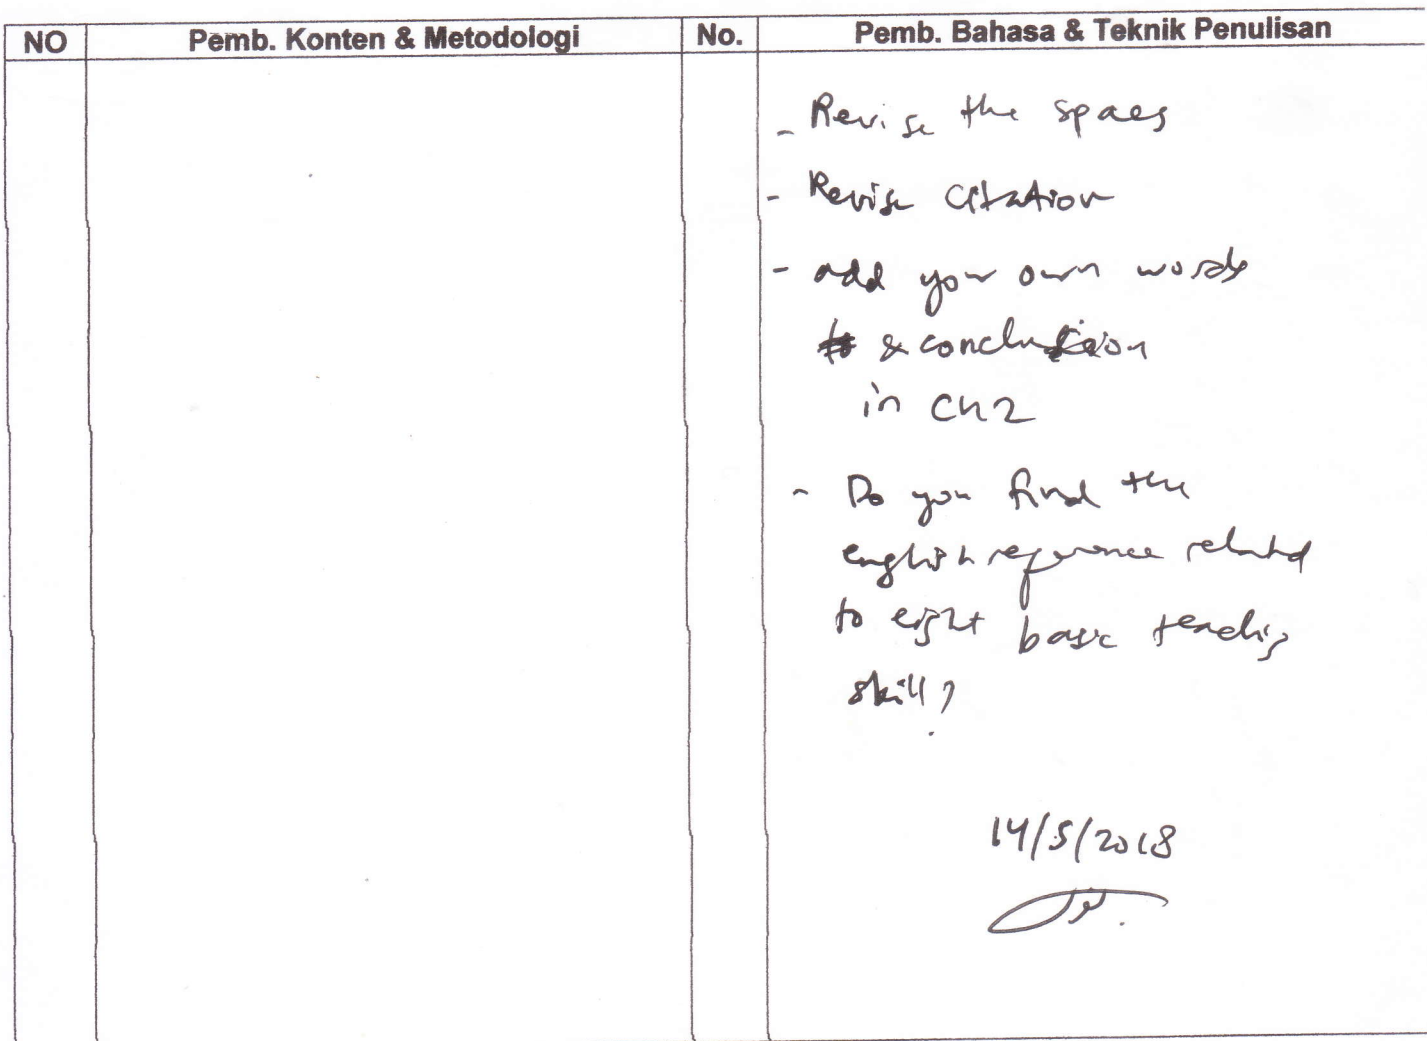 NO Pemb. Konten & Metodologi No. Pemb. Bahasa & Teknik Penulisan
- Revise the spaces
- Revise Citation
- add your own words
& conclusion
in Ch 2
- Do you find the
english reference related
to eight basic teaching
skill?
14/5/2018